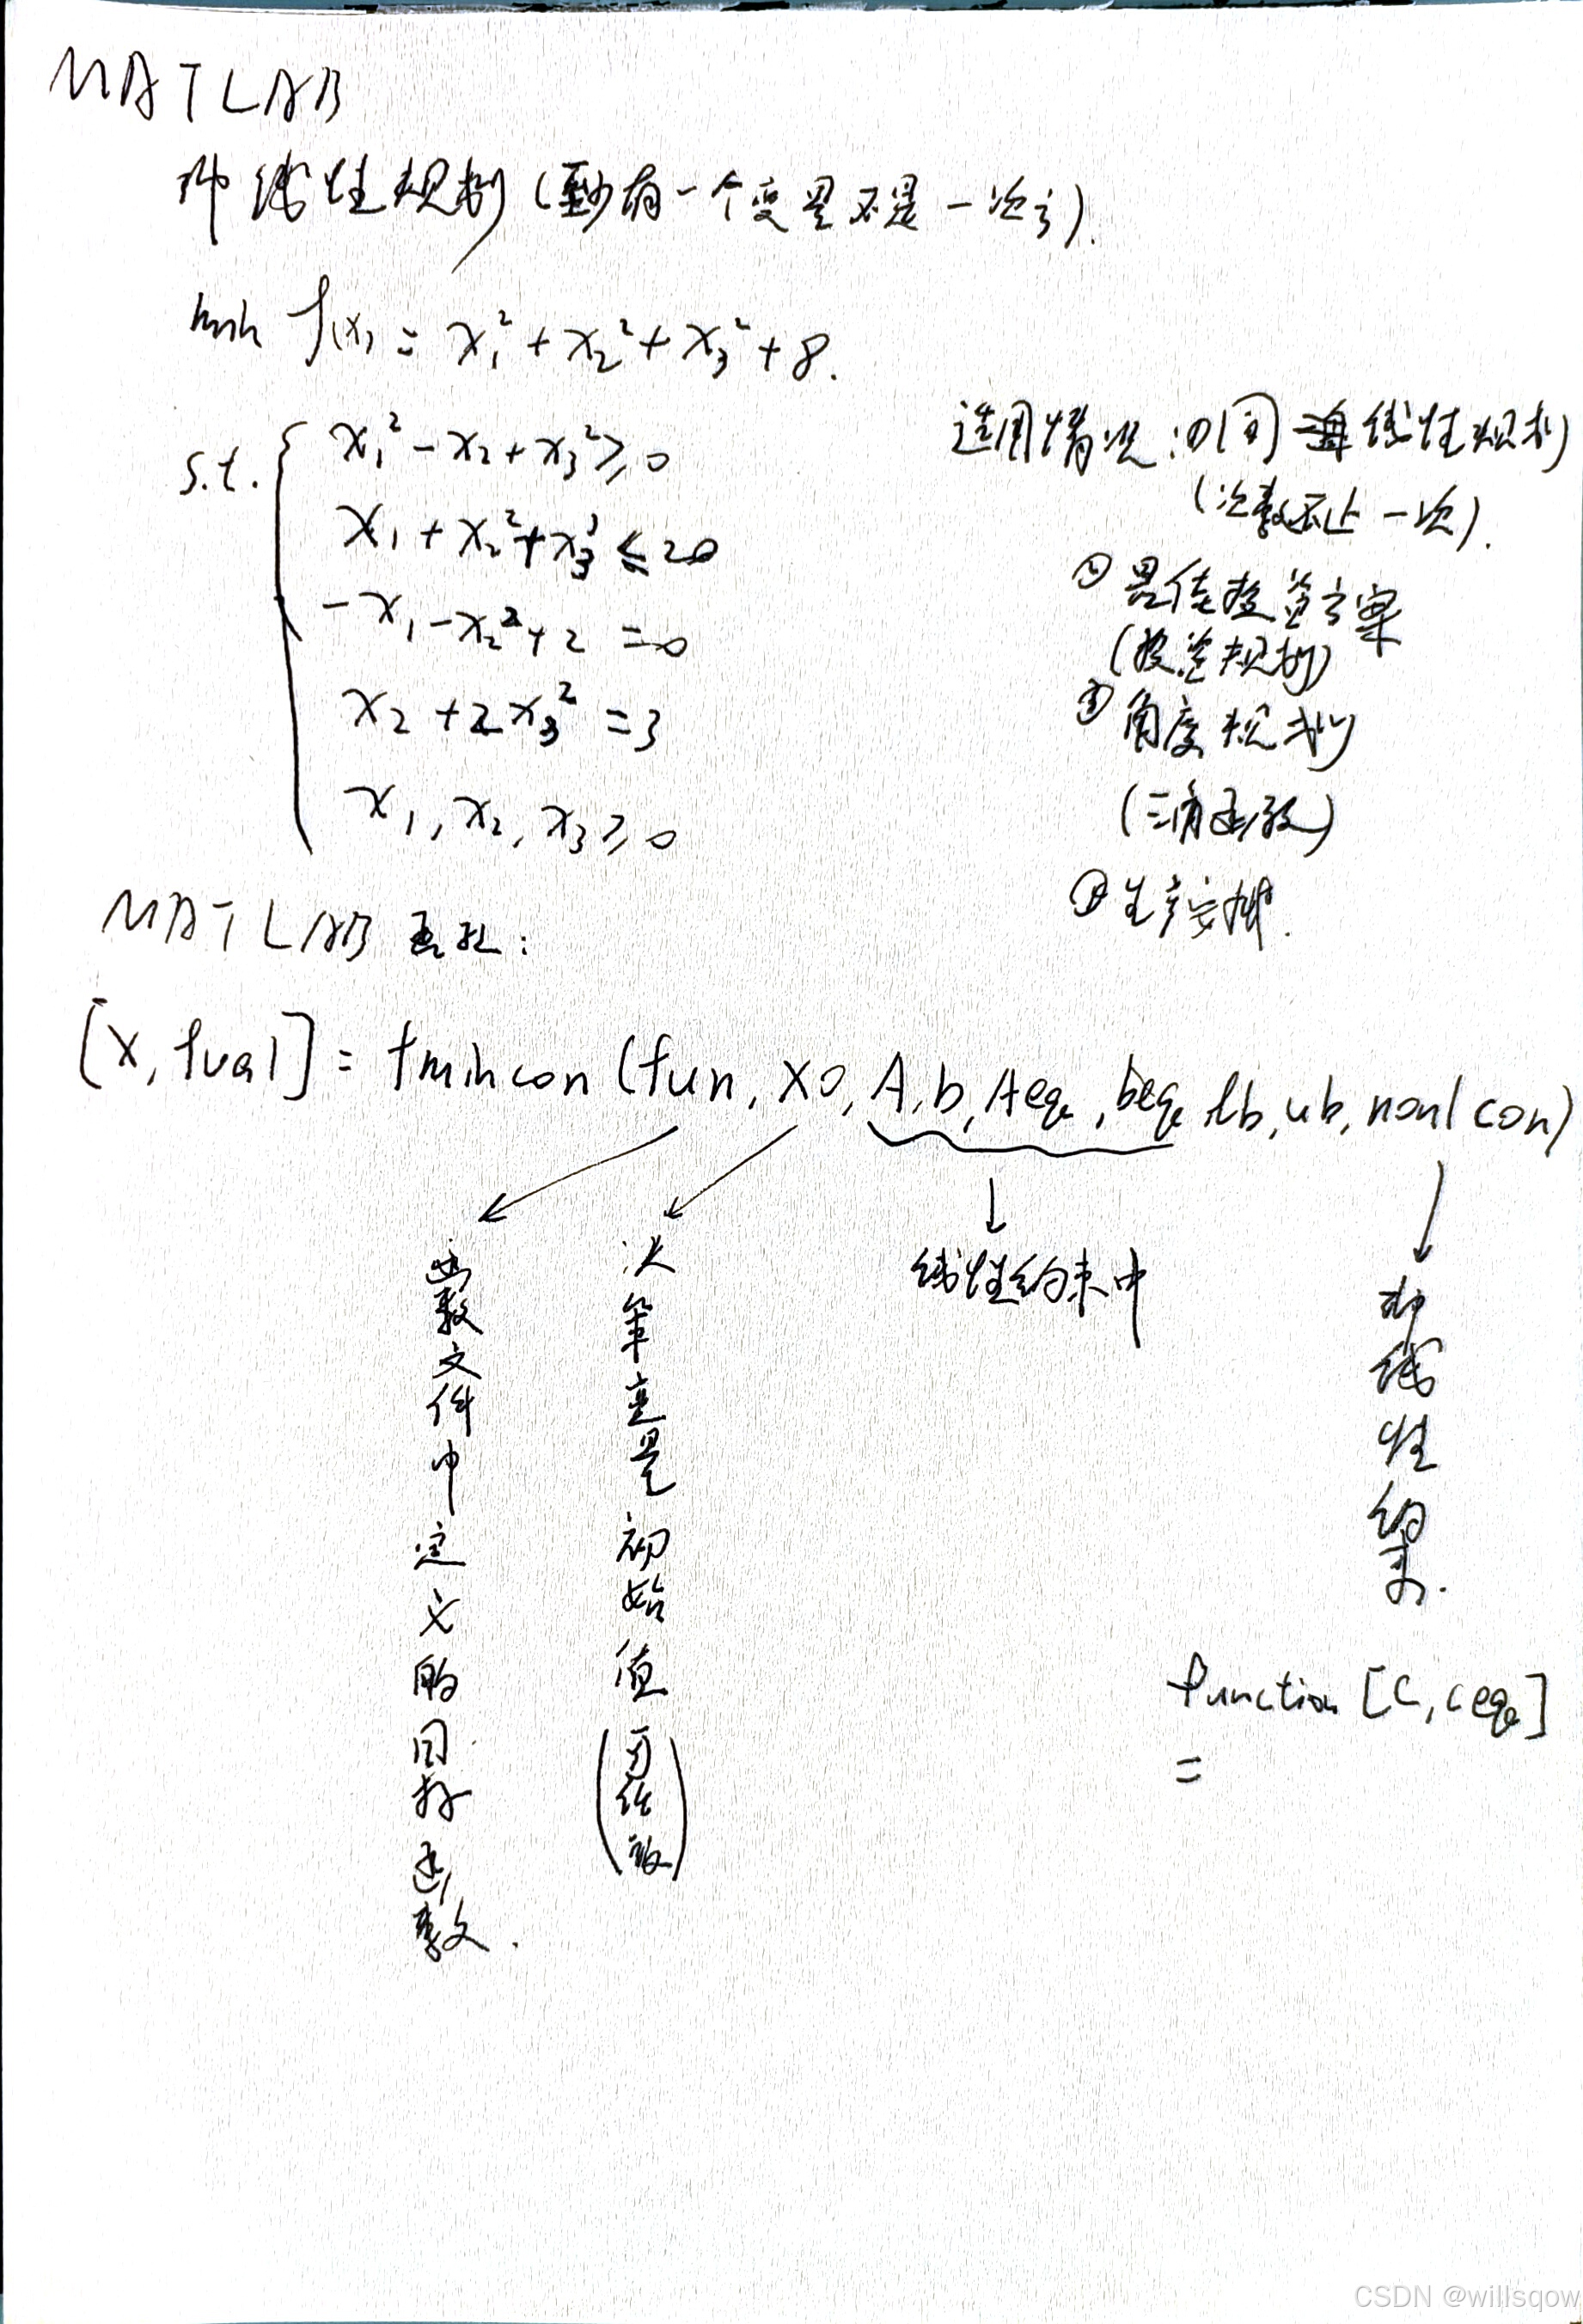 MATLAB
非线性规划(至少有一个变量不是一次方).
min f(x) = x₁² + x₂² + x₃² + 8.
s.t. { x₁² - x₂ + x₃² ≥ 0
x₁ + x₂² + x₃³ ≤ 20
-x₁ - x₂² + 2 = 0
x₂ + 2x₃² = 3
x₁, x₂, x₃ ≥ 0
适用情况: 同 线性规划
(次数不止一次).
最佳投资方案
(投资规划)
② 角度规划
(三角函数)
生产安排.
MATLAB 函数:
[x, fval] = fmincon(fun, x0, A, b, Aeq, beq, lb, ub, nonlcon)
函数文件中定义的目标函数.
决策变量初始值(可任取)
线性约束中
非线性约束.
function [c, ceq]
=
CSDN @willsqow